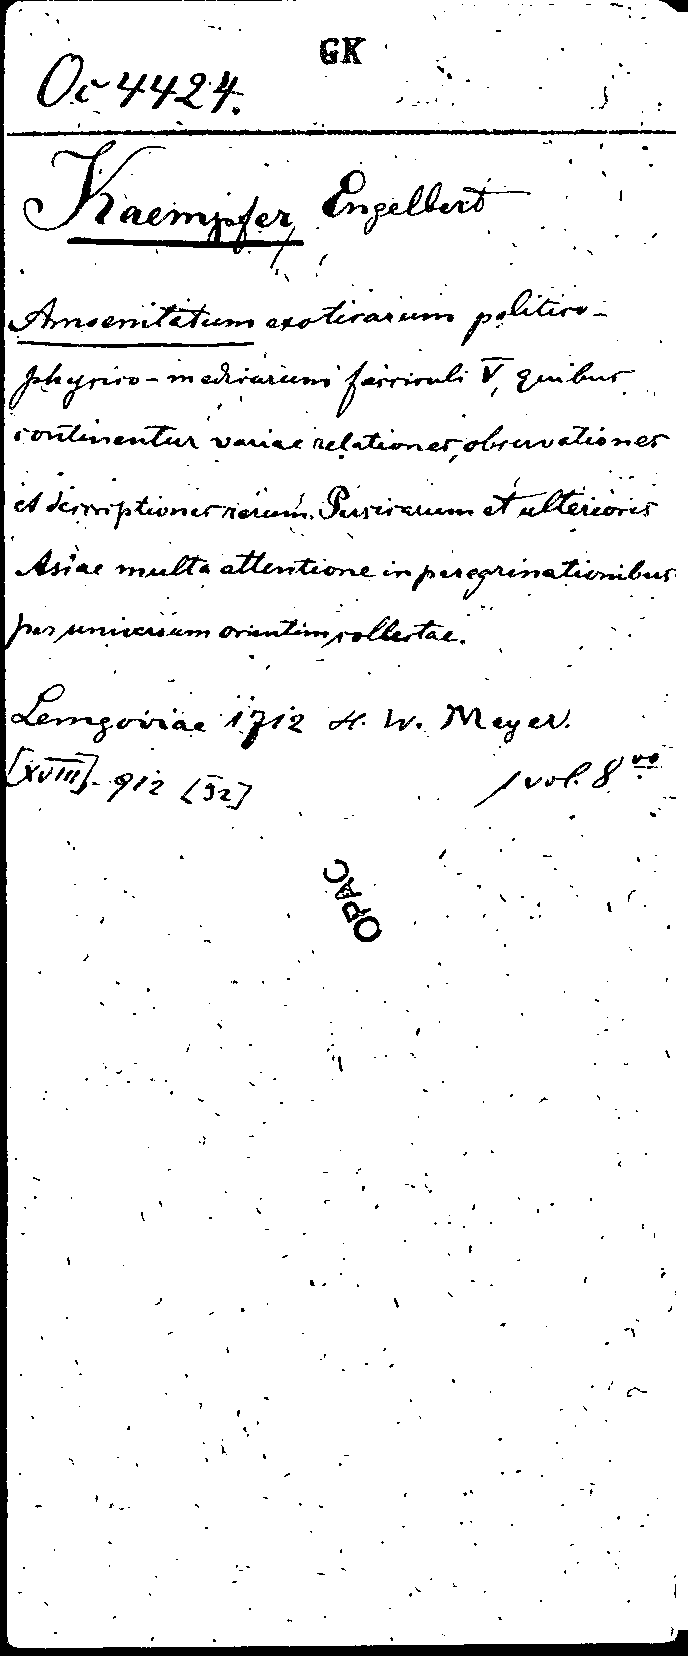 GK
Oc 4424.
Kaempfer, Engelbert
Amoenitatum exoticarum politico-
physico-medicarum fasciculi V, quibus
continentur variae relationes, observationes
et descriptiones rerum Persicarum et ulterioris
Asiae multa attentione in peregrinationibus
per universum orientim collectae.
Lemgoviae 1712 H. W. Meyer.
[XVIII]-912 [32] 1 vol. 8vo
OPAC